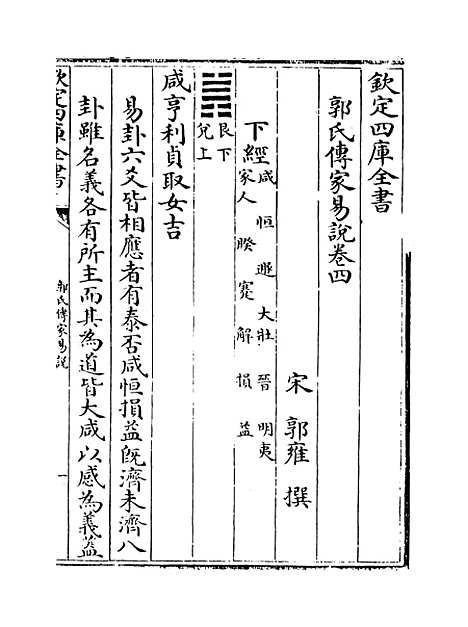 欽定四庫全書
郭氏傳家易說卷四
宋 郭雍 撰
下經咸 恒 遯 大壯 晉 明夷
家人 睽 蹇 解 損 益
䷞艮下
兌上
咸亨利貞取女吉
易卦六爻皆相應者有泰否咸恒損益旣濟未濟八
卦雖名義各有所主而其為道皆大咸以感為義蓋
欽定四庫全書
郭氏傳家易說
一